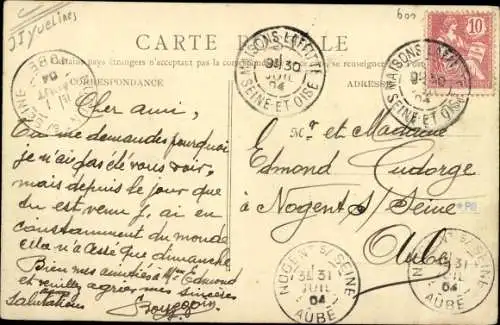 JJYvelines
600
CARTE POSTALE
CORRESPONDANCE
ADRESSE
MAISONS LAFFITTE
9H 30
JUIL
04
SEINE ET OISE
10
MAISONS LAFFITTE
9H 30
JUIL
04
SEINE ET OISE
Cher ami,
Tu me demandes pourquoi
je n'ai pas été vous voir,
mais depuis le jour que
tu est venu j'ai eu
constamment du monde
cela n'a cesté que dimanche
Bien mes amitiés à Mme Edmond
et veuillez agréer mes sincères
Salutations
Mr et Madame
Edmond Cudorge
à Nogent s/ Seine
Aube
NOGENT S/ SEINE
31
JUIL
04
AUBE
NOGENT S/ SEINE
31
JUIL
04
AUBE